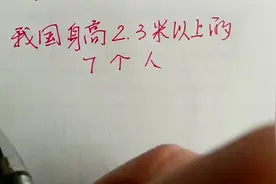 我国身高2.3米以上的
7个人